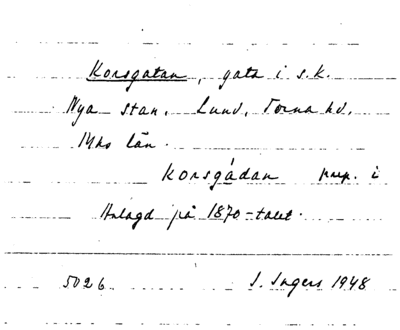 Korsgatan, gata i s.k.
Nya stan. Lund, Torna hd.
Mhs län.
Korsgådan prep. i
Anlagd på 1870-talet.
5026 I. Ingers 1948